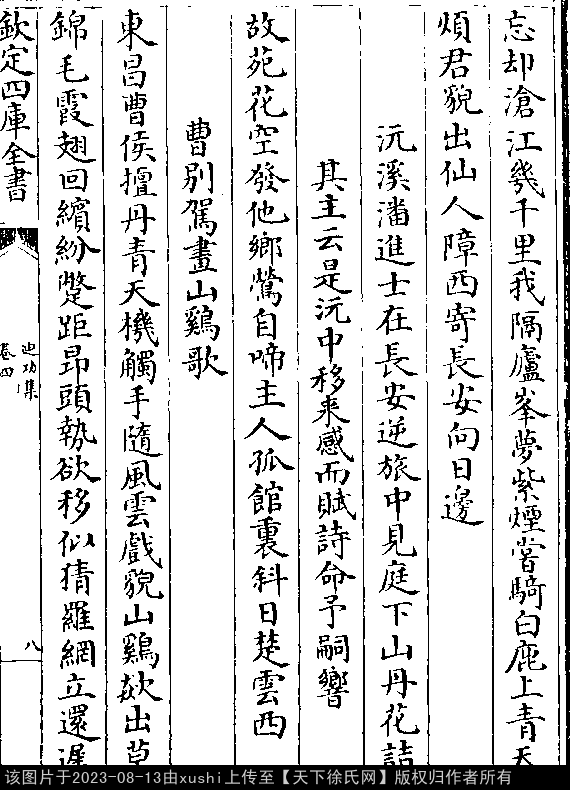 忘却滄江幾千里我隔廬峯夢紫煙嘗騎白鹿上青天
煩君貌出仙人障西寄長安向日邊
沅溪潘進士在長安逆旅中見庭下山丹花詰
其主云是沅中移来感而賦詩命予嗣響
故苑花空發他鄉鶯自啼主人孤館裏斜日楚雲西
曹别駕畫山鷄歌
東昌曹侯擅丹青天機觸手隨風雲戲貌山鷄欻出草
錦毛霞翅回繽紛蹩距昂頭執欲移似猜羅網立還遲
欽定四庫全書
迪功集
卷四
八
该图片于2023-08-13由xushi上传至【天下徐氏网】版权归作者所有